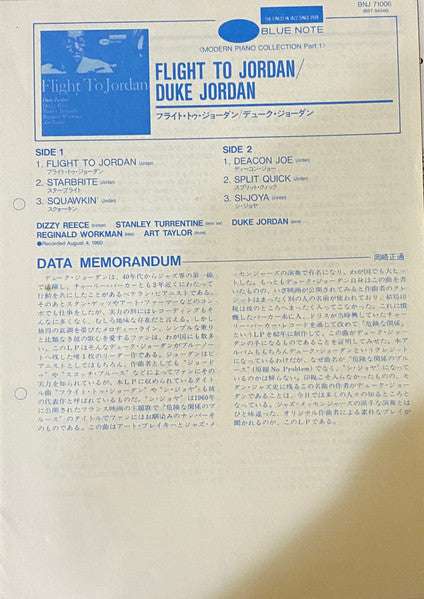 BNJ 71006
(BST 84046)
THE FINEST IN JAZZ SINCE 1939
BLUE NOTE
〈MODERN PIANO COLLECTION Part 1〉
FLIGHT TO JORDAN/
DUKE JORDAN
フライト・トゥ・ジョーダン/デューク・ジョーダン
Flight To Jordan
Duke Jordan
Dizzy Reece
Stanley Turrentine
Reginald Workman
Art Taylor
SIDE 1
1. FLIGHT TO JORDAN (Jordan)
フライト・トゥ・ジョーダン
2. STARBRITE (Jordan)
スターブライト
3. SQUAWKIN' (Jordan)
スクォーキン
SIDE 2
1. DEACON JOE (Jordan)
ディーコン・ジョー
2. SPLIT QUICK (Jordan)
スプリット・クィック
3. SI-JOYA (Jordan)
シ・ジョヤ
DIZZY REECE (trumpet) STANLEY TURRENTINE (tenor sax) DUKE JORDAN (piano)
REGINALD WORKMAN (bass) ART TAYLOR (drums)
●Recorded August 4, 1960
DATA MEMORANDUM
岡崎正通
デューク・ジョーダンは、40年代からジャズ界の第一線
で活躍し、チャーリー・パーカーとも3年近くにわたって
行動を共にしたことがあるベテラン・ピアニストである。
そのあとスタン・ゲッツやアート・ファーマーなどのコン
ボでも仕事をしたが、実力の割にはレコーディングもそ
んなに多くなく、むしろ地味な存在だと言える。しかし
独得の哀調を帯びたメロディー・ライン、シンプルな乗り
と比類なき彼の歌心を愛するファンは、わが国にも数多
い。このLPはそんなデューク・ジョーダンがブルーノー
トへ残した唯1枚のリーダー作である。ジョーダンはピ
アニストとしてはもちろん、作曲者としても“ジョード
ゥ”や“スコッチ・ブルース”などによってファンにその
実力を知られているが、本LPに収められているタイト
ル曲“フライト・トゥ・ジョーダン”や“シ・ジョヤ”も彼
の代表作と呼ばれているものだ。“シ・ジョヤ”は1960年
に公開されたフランス映画の主題歌で“危険な関係のブ
ルース”のタイトルでファンにはお馴染みのナンバーそ
のものである。この曲はアート・ブレイキーとジャズ・メ
ッセンジャーズの演奏で有名になり、わが国でも大ヒット
した。もっともデューク・ジョーダン自身はこの曲を書
いたものの、いざ映画が公開されてみると作曲者のクレ
ジットはまったく別の人の名前が使われており、結局印
税は彼のところへまったく入ってこなかった。これに憤
慨したパーカー未亡人、ドリスが当時興していたチャー
リー・パーカー・レコードを通じて改めて「危険な関係」
というLPを62年に制作して、この曲がデューク・ジョーダ
ンの手になるものであることを証明してみせた。本ア
ルバムももちろんデューク・ジョーダンというクレジット
になっているわけだが、なぜ曲名が“危険な関係のブル
ース”（原題No Problem）でなく、“シ・ジョヤ”になって
いるのかは解らない。印税こそ入らなかったものの、モ
ダン・ジャズ史に残るこの名曲の作者がデューク・ジョー
ダンであることは、今日では多くの人々の知るところと
なっている。ジャズ・メッセンジャーズの派手な演奏とは
ひと味違った、オリジナル作曲者による素朴なプレイが
聞かれるのが、このLPである。